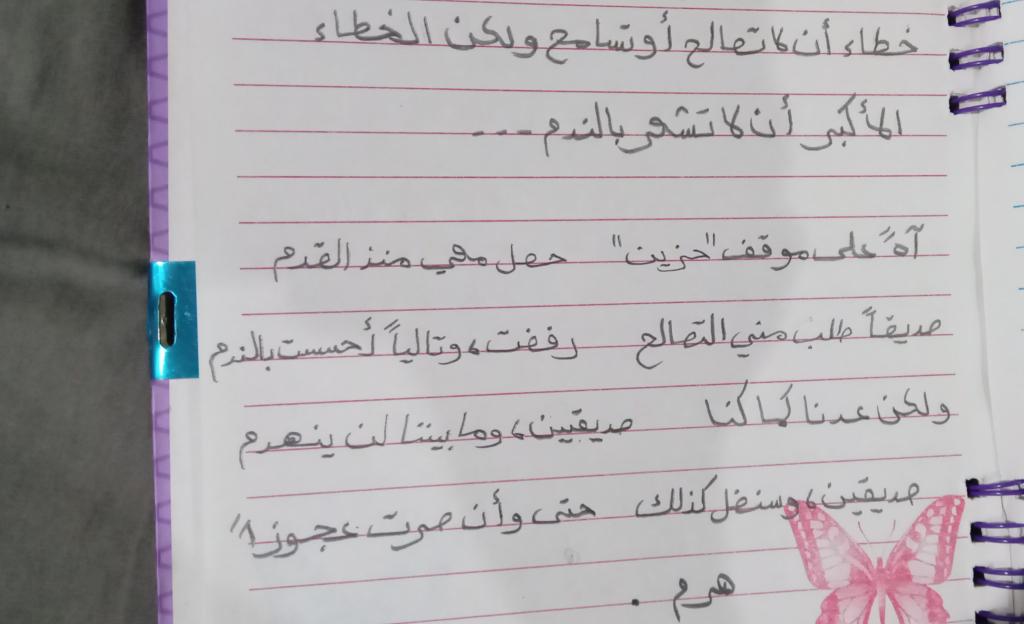 خطاء أن لا تصالح أو تسامح ولكن الخطاء
الأكبر أن لا تشعر بالندم ---
آهً على موقف "حزين" حصل معي منذ القدم
صديقاً طلب مني التصالح رفضت، وتالياً أحسست بالندم
ولكن عدنا كما كنا صديقين، وما بيننا لن ينهدم
صديقين، وسنضل كذلك حتى وأن صرت عجوزاً
هرم .